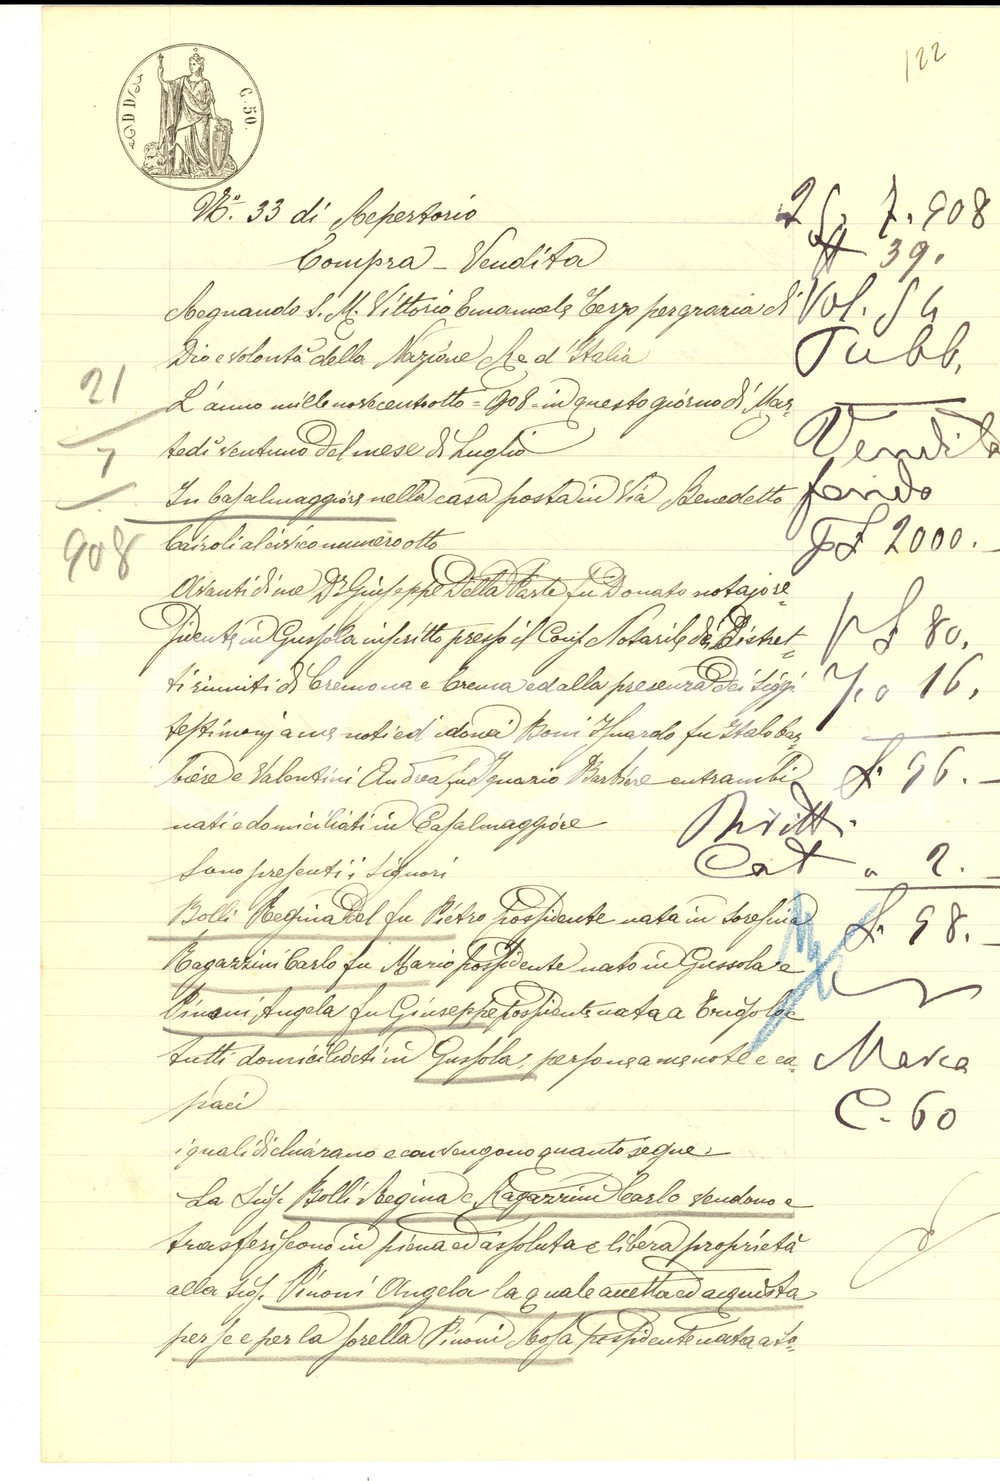 122
DD
C. 50.
No. 33 di Repertorio
Compra - Vendita
Regnando S. M. Vittorio Emanuele Terzo per grazia di
Dio e volontà della Nazione Re d'Italia
L'anno millenovecentotto = 908 = in questo giorno di Mar=
tedì ventuno del mese di Luglio
In Casalmaggiore nella casa posta in Via Benedetto
Cairoli al civico numero otto
Avanti di me Dr Giuseppe Della Parte fu Donato notajo re=
sidente in Gussola inscritto presso il Consiglio Notarile dei Distret=
ti riuniti di Cremona e Crema ed alla presenza dei Sigg.i
testimonj a me noti ed idonei Boni fu Italo bar=
biere e Valentini Andrea fu Ignazio Barbiere entrambi
nati e domiciliati in Casalmaggiore
Sono presenti i Signori
Bolli Regina del fu Pietro possidente nata in Soresina
Ragazzini Carlo fu Mario possidente nato in Gussola e
Pinoni Angela fu Giuseppe possidente nata a
tutti domiciliati in Gussola, persone a me note e ca=
paci
i quali dichiarano e convengono quanto segue:
La Sig. Bolli Regina e Ragazzini Carlo vendono e
trasferiscono in piena ed assoluta e libera proprietà
alla Sig. Pinoni Angela la quale accetta ed acquista
per se e per la sorella Pinoni Rosa possidente nata a To=
21
7
908
25. 7. 908
# 39.
Vol. 54
Pubb.
Vendita
fondo
L 2000.-
p L 80.
16.
L. 96.-
Diritt.
Cat " 2.-
L. 98.-
Marca
C. 60